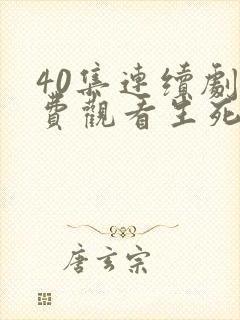 40集連續劇
費觀看生死
唐玄宗